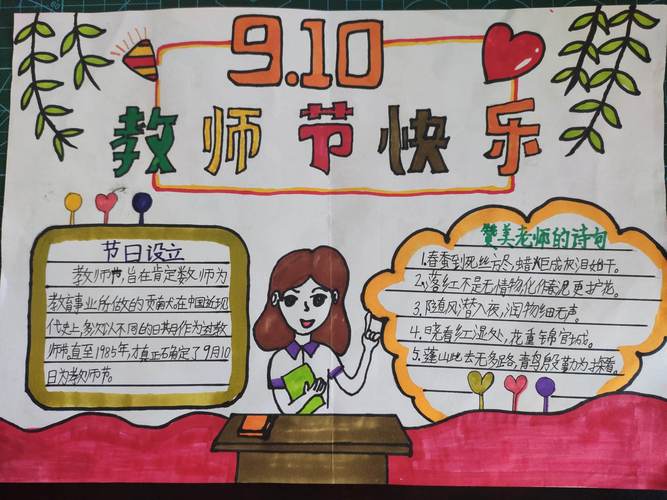 9.10
教师节快乐
节日设立
教师节,旨在肯定教师为
教育事业所做的贡献尢在中国近现
代史上,多次以不同的日期作为对教
师节,直至1985年,才真正石角定了9月10
日为教师节。
赞美老师的诗句
1.春蚕到死丝方尽,蜡炬成灰泪始干。
2.落红不是无情物,化作春泥更护花。
3.随风潜入夜,润物细无声。
4.晓看红湿处,花重锦官城。
5.蓬山此去无多路,青鸟殷勤为探看。